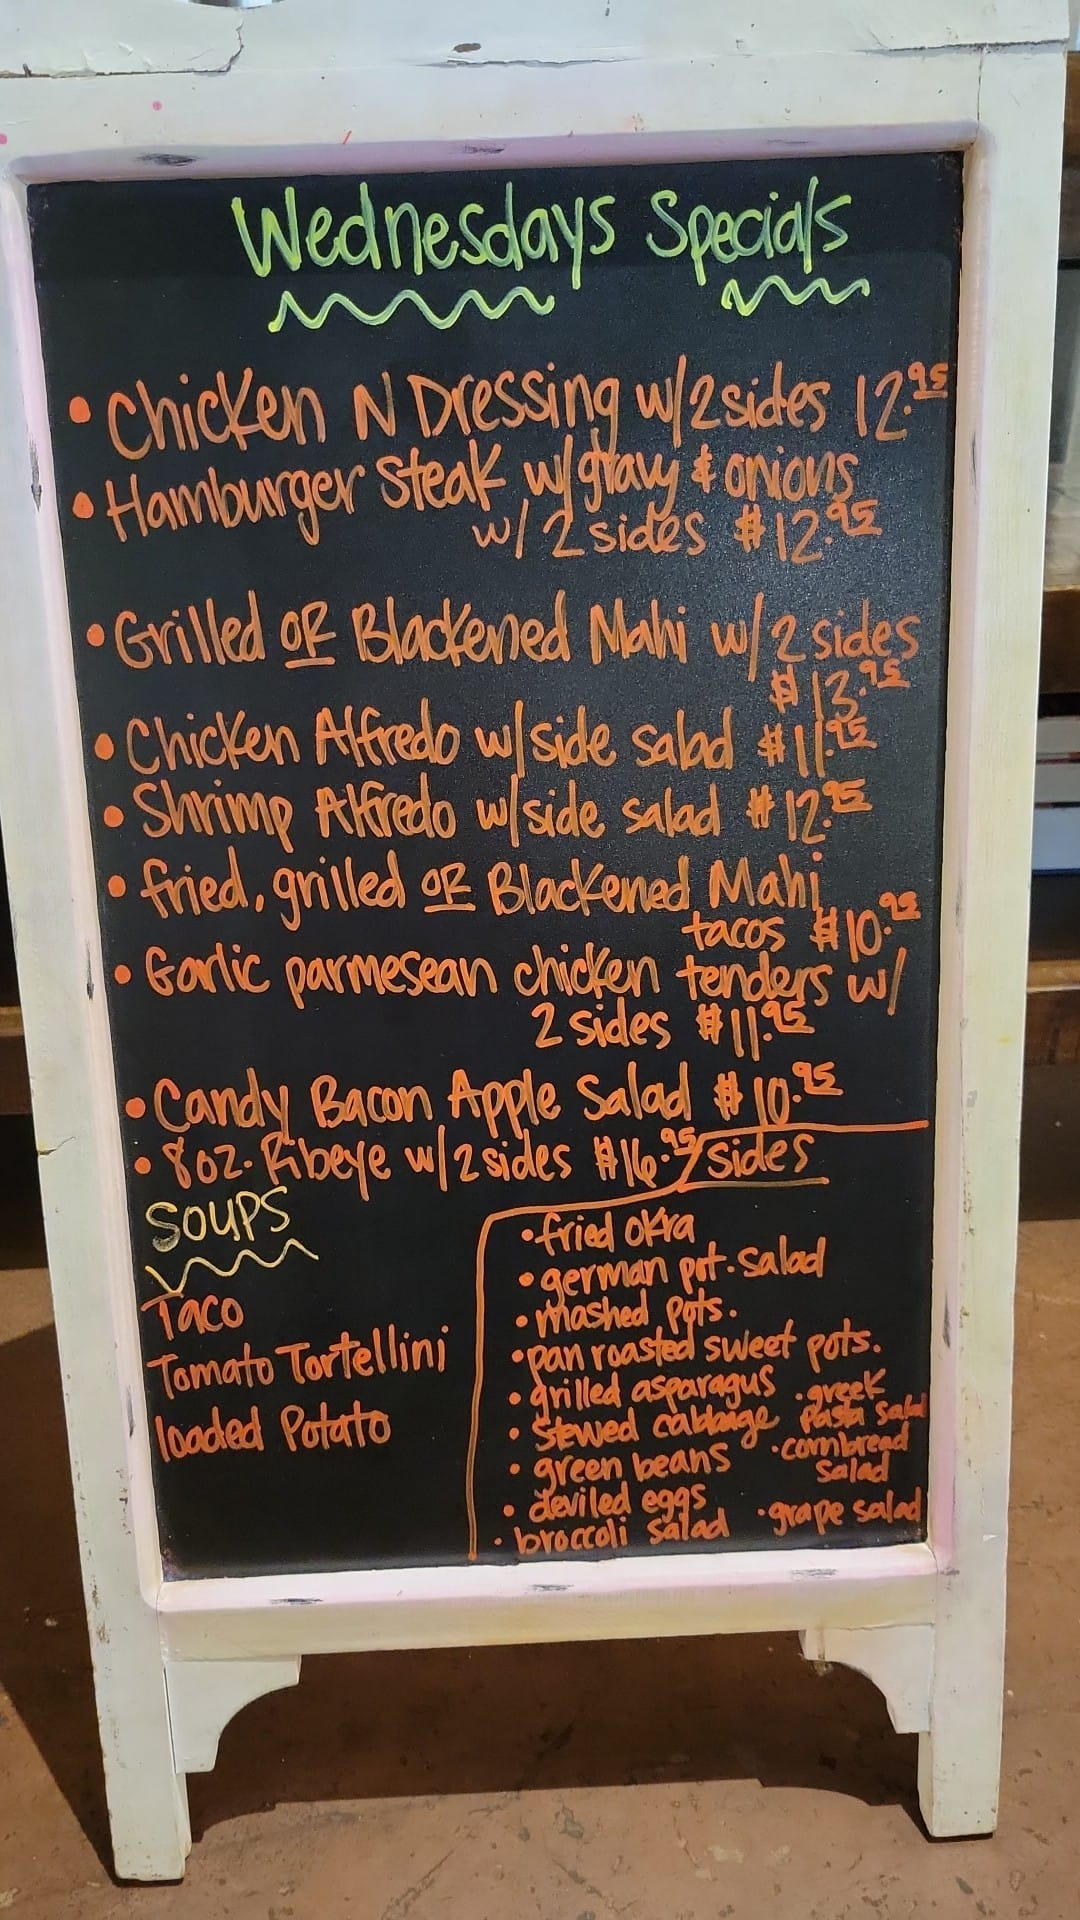 Wednesdays Specials
• Chicken N Dressing w/2 sides 12.95
• Hamburger Steak w/gravy & onions
w/ 2 sides $12.95
• Grilled OR Blackened Mahi w/ 2 sides
$13.95
• Chicken Alfredo w/side salad $11.95
• Shrimp Alfredo w/side salad $12.95
• fried, grilled OR Blackened Mahi
tacos $10.95
• Garlic parmesean chicken tenders w/
2 sides $11.95
• Candy Bacon Apple Salad $10.95
• 8oz. Ribeye w/2 sides $16.95
SOUPS
Taco
Tomato Tortellini
loaded Potato
sides
• fried okra
• german pot. salad
• mashed pots.
• pan roasted sweet pots.
• grilled asparagus
• stewed cabbage
• green beans
• deviled eggs
• broccoli salad
• greek
pasta salad
• cornbread
salad
• grape salad